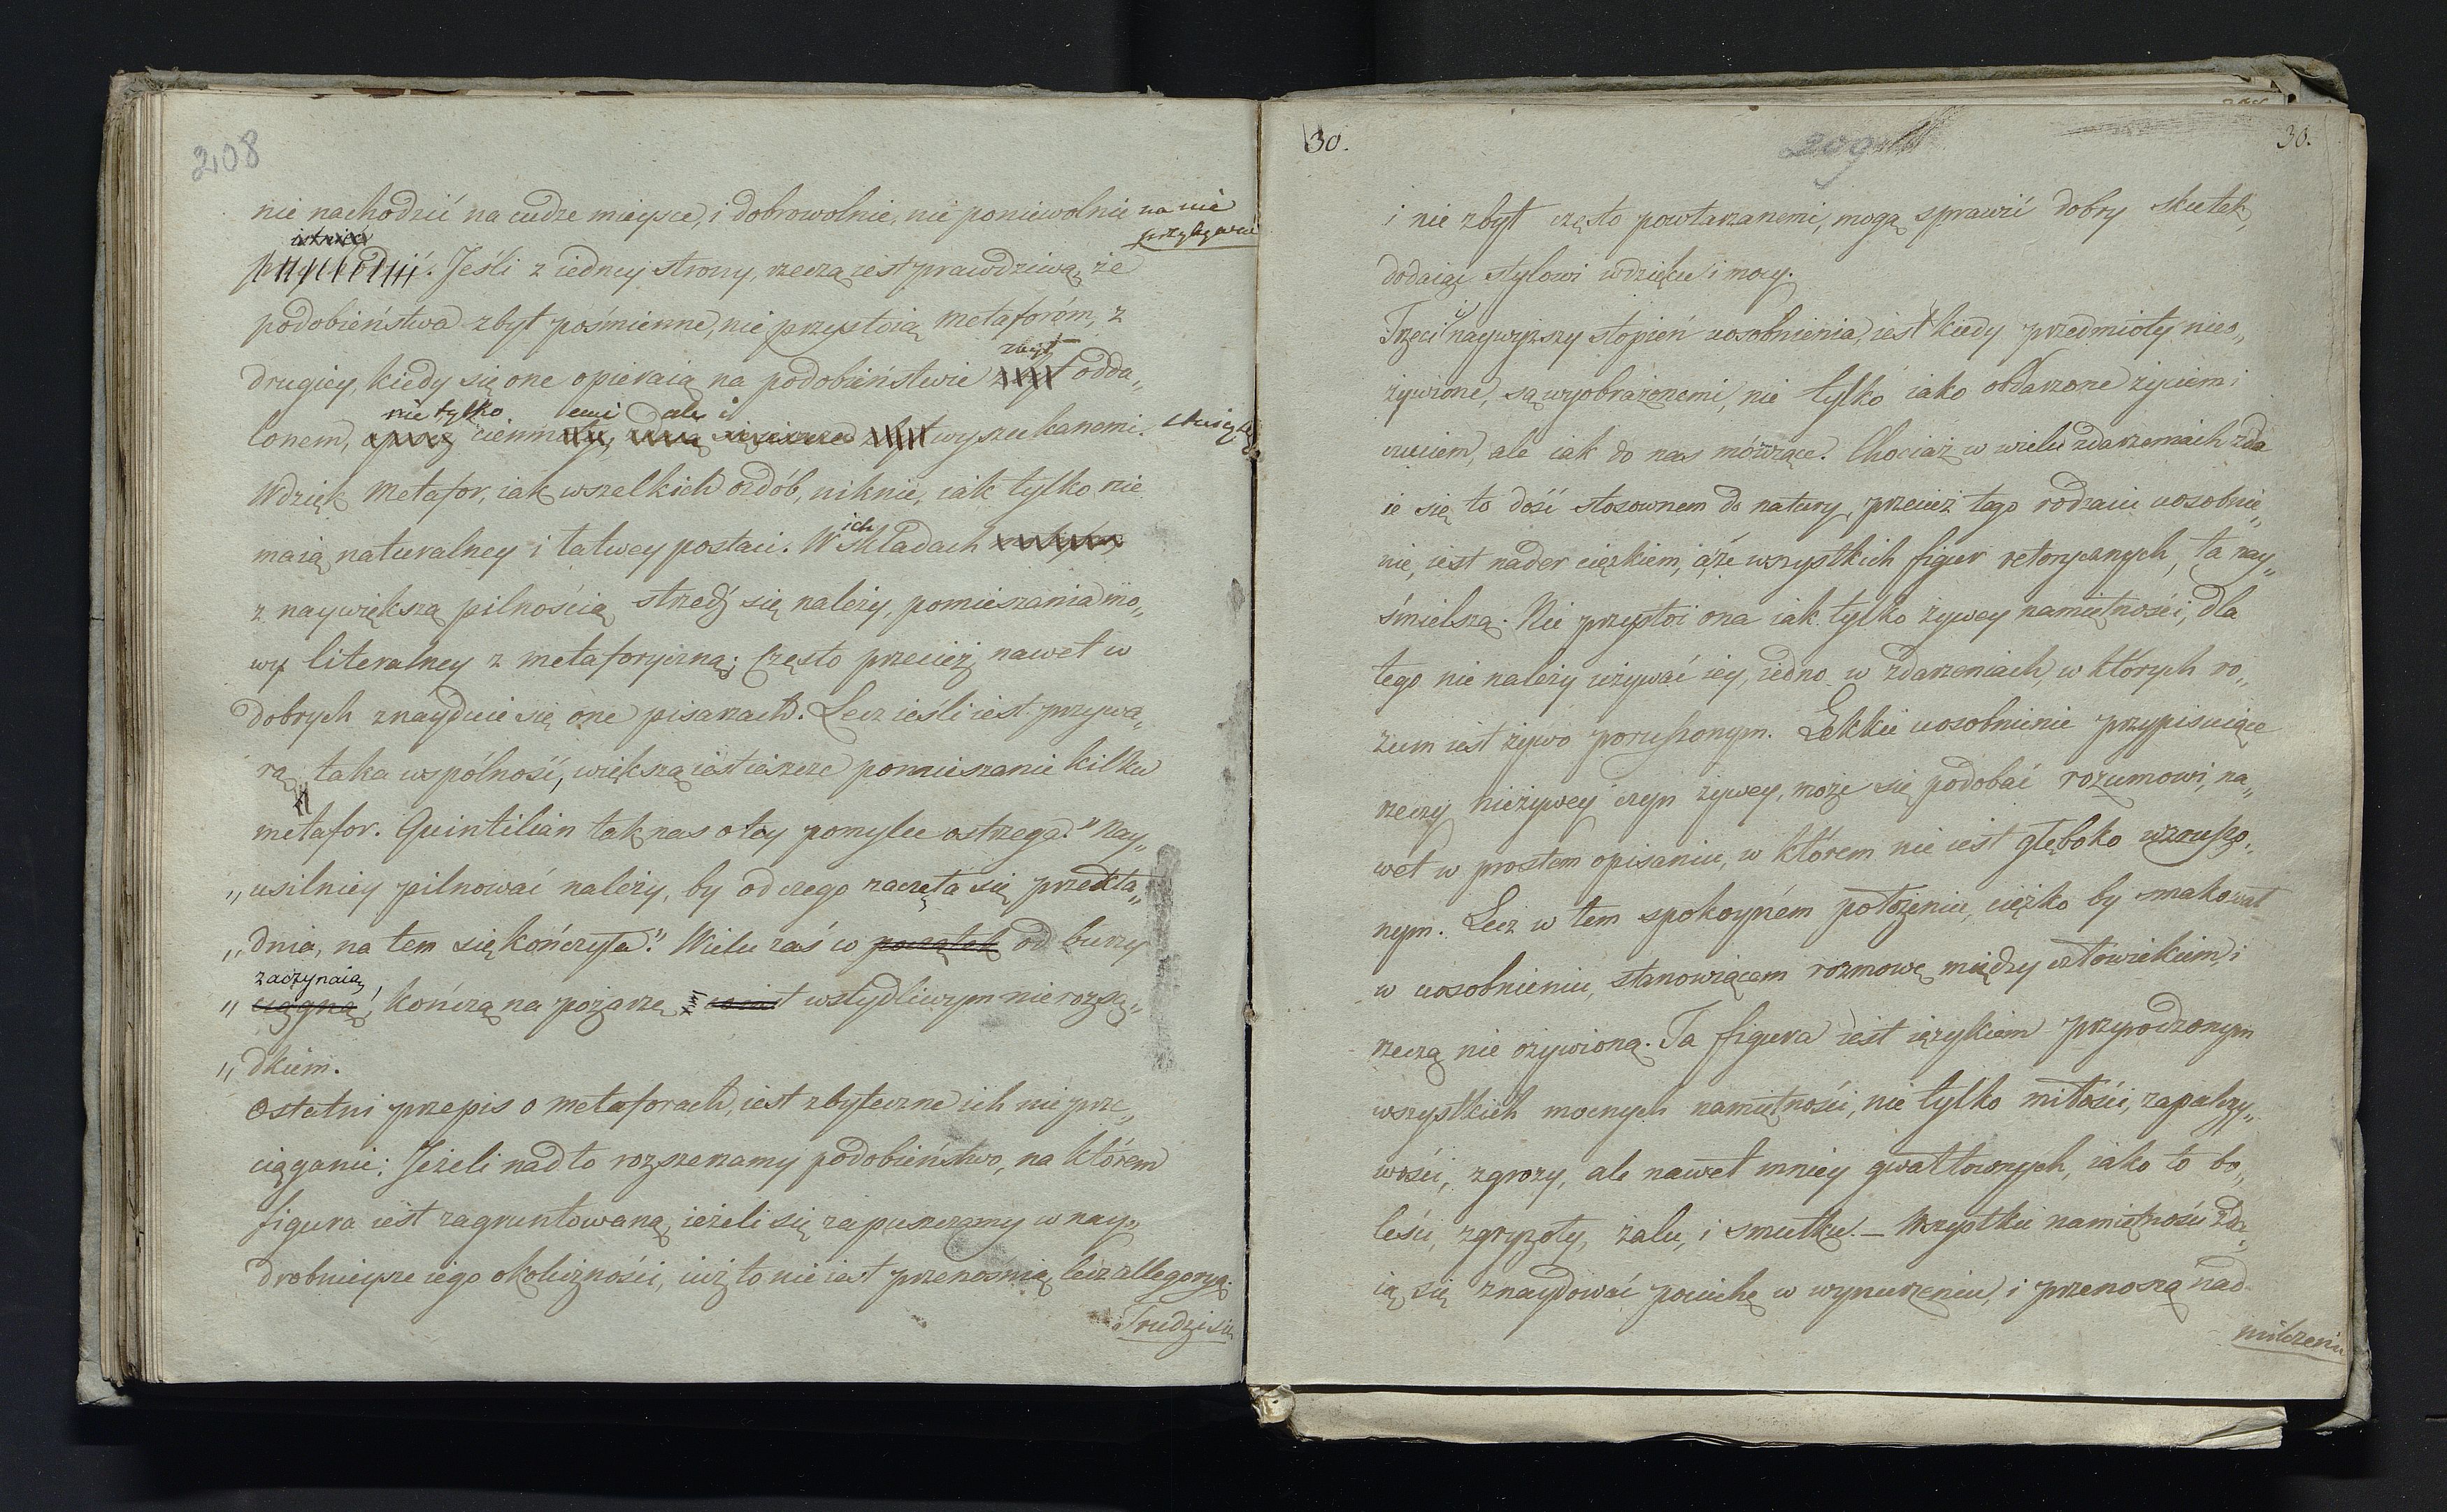 208
nie nachodzić na cudze mieysce, i dobrowolnie, nie poniewolnie na nie
przybywać
istnieć
przychodzić. Jeśli z iedney strony, rzeczą iest prawdziwą, że
podobieństwa zbyt pośmienne, nie przystoią metaforóm, z
drugiey, kiedy się one opieraią na podobieństwie zbyt odda„
zbyt
nie tylko emi ale i
lonem, ciemn zbyt wyszukanemi.
Wdzięk Metafor, iak wszelkich ozdób, niknie, iak tylko nie
maią naturalney i łatwey postaci. W ich składach
z naywiększą pilnością strzedz się należy, pomieszania mo„
wy literalney z metaforyczną; często przecież nawet w
dobrych znayduie się one pisarzach. Lecz ieśli iest przywa„
rą taka wspólność, większą iest ieszcze pomieszanie kilku
metafor. Quintilian tak nas o tey pomyłce ostrzega. „Nay„
„usilniey pilnować należy, by od czego zaczęta się przekła„
„dnia, na tem się kończyła." Wielu zaś w początek od burzy
zaczynaią,
„ciągną, kończą na pożarze, wstydliwym nierozsą„
„dkiem.
Ostatni przepis o metaforach, iest zbyteczne ich nie prze„
ciąganie: Jeżeli nadto rozszerzamy podobieństwo, na którem
figura iest zagruntowaną, ieżeli się zapuszczamy w nay„
drobnieysze iego okoliczności, iuż to nie iest przenosnią, lecz allegoryą.
Trudzi się
30. 209 30.
i nie zbyt często powtarzanemi, mogą sprawić dobry skutek,
dodaiąc stylowi wdzięku i mocy.
Trzeci i naywyższy stopień uosobnienia, iest kiedy przedmioty nieo„
żywione, są wyobrażonemi, nie tylko iako obdarzone życiem i
czuciem, ale iak do nas mówiące. Chociaż w wielu zdarzeniach zda
ie się to dość stosownem do natury, przecież tego rodzaiu uosobnie„
nie, iest nader ciężkiem, i że wszystkich figur retorycznych, ta nay„
śmielszą. Nie przystoi ona iak tylko żywey namiętności, dla
tego nie należy używać iey, iedno w zdarzeniach, w których ro„
zum iest żywo poruszonym. Lekkie uosobnienie przypisuiące
rzeczy nieżywey czyn żywey, może się podobać rozumowi, na„
wet w prostem opisaniu, w którem nie iest głęboko wzruszo„
nym. Lecz w tem spokoyném położeniu, ciężko by smakował
w uosobnieniu, stanowiącem rozmowę między człowiekiem i
rzeczą nie ożywioną. Ta figura iest ięzykiem przyrodzonym
wszystkich mocnych namiętności, nie tylko miłości, zapalczy„
wości, zgrozy, ale nawet mniey gwałtownych, iako to bo„
leści, zgryzoty, żalu, i smutku. — Wszystkie namiętności zda„
ią się znaydować pociechę w wynurzeniu, i przenoszą nad
milczenie